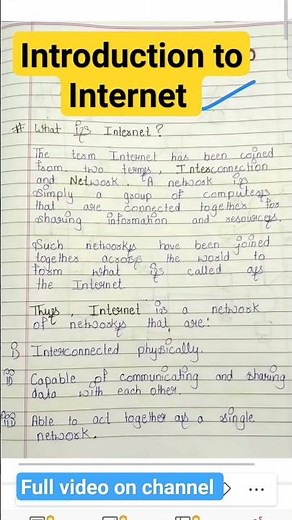 Introduction to
Internet
# What is Internet?
The team Internet has been coined
from two terms, Interconnection
and Network. A network is
simply a group of computers
that are connected together for
sharing information and resources.
Such networks have been joined
together across the world to
form what is called as
the Internet.
Thus, Internet is a network
of networks that are:
i) Interconnected physically.
ii) Capable of communicating and sharing
data with each other.
iii) Able to act together as a single
network.
Full video on channel